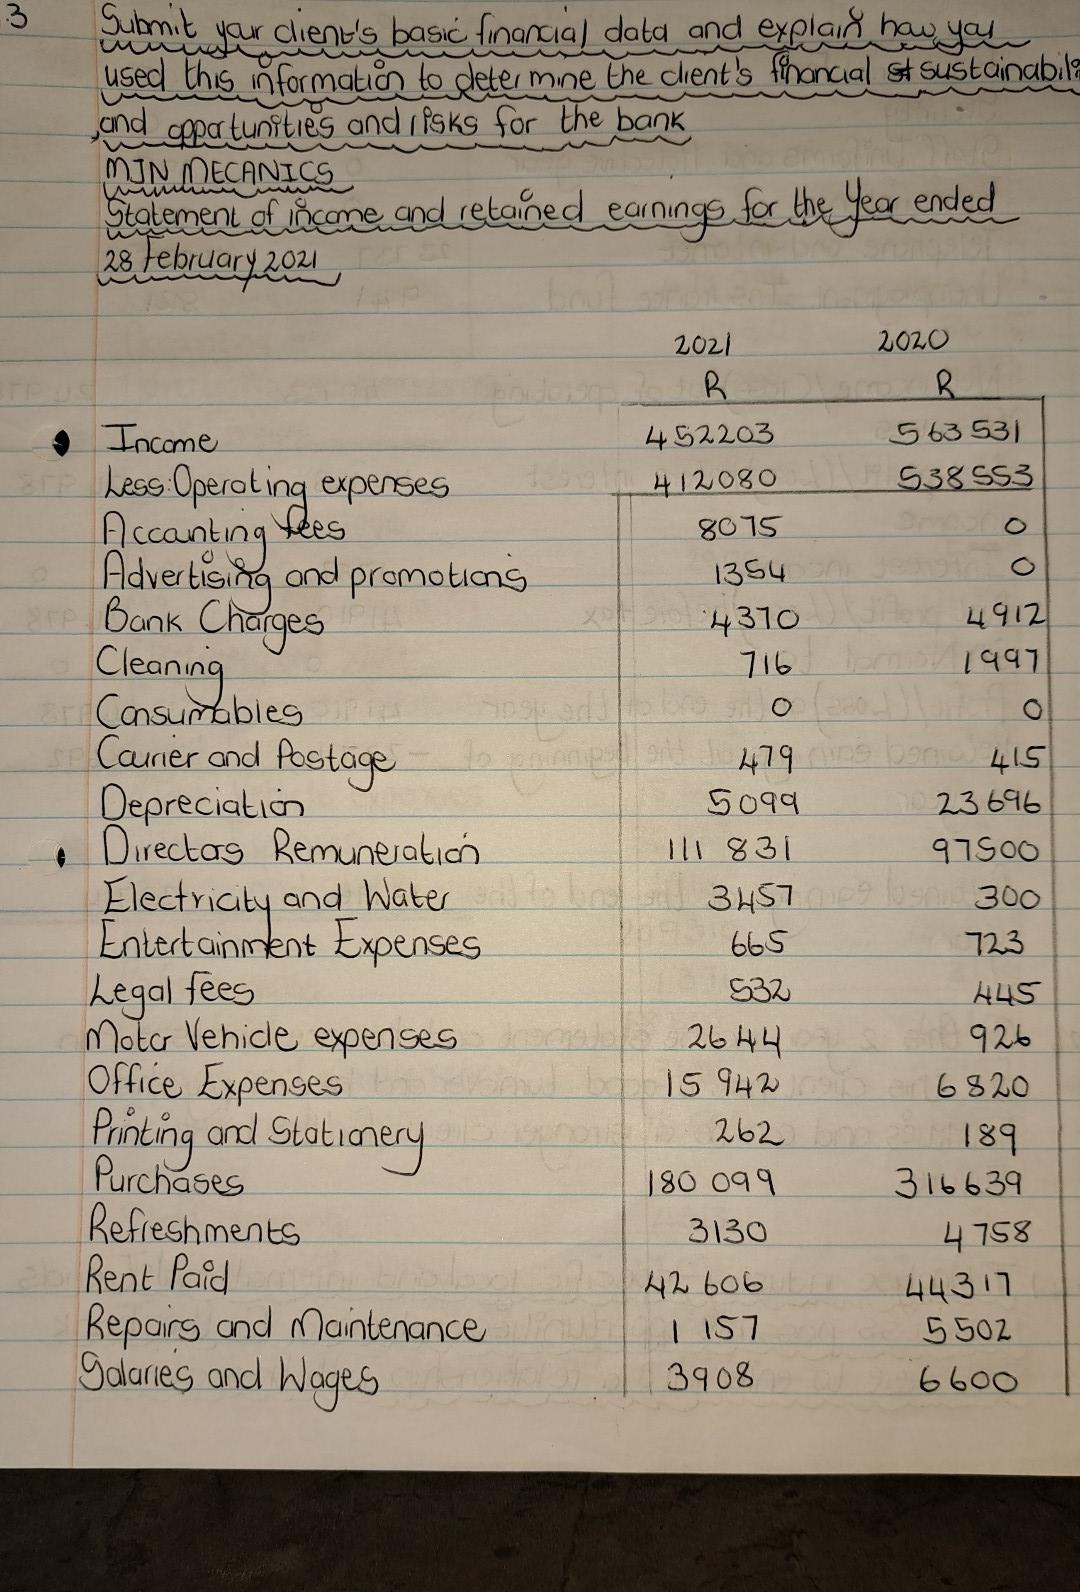 3 Submit your client's basic financial data and explain how you
used this information to determine the client's financial st sustainabili
, and opportunities and risks for the bank
MJN MECANICS
Statement of income and retained earnings for the Year ended
28 February 2021
2021 2020
R R
Income 452203 563 531
Less: Operating expenses 412080 538553
Accounting fees 8075 0
Advertising and promotions 1354 0
Bank Charges 4370 4912
Cleaning 716 1997
Consumables 0 0
Courier and Postage 479 415
Depreciation 5099 23696
Directors Remuneration 111 831 97500
Electricity and Water 3457 300
Entertainment Expenses 665 723
Legal fees 532 445
Motor Vehicle expenses 2644 926
Office Expenses 15 942 6820
Printing and Stationery 262 189
Purchases 180 099 316639
Refreshments 3130 4758
Rent Paid 42 606 44317
Repairs and Maintenance 1 157 5502
Salaries and Wages 3908 6600